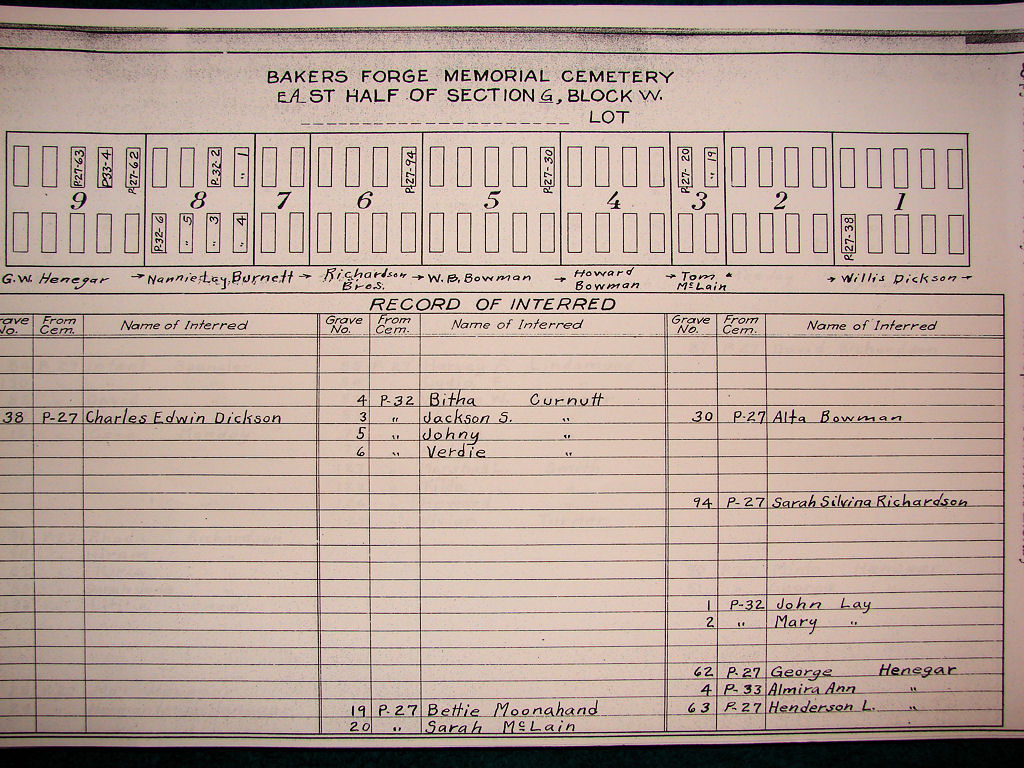 BAKERS FORGE MEMORIAL CEMETERY
EAST HALF OF SECTION G, BLOCK W.
LOT
P.27-63 P33-4 P.27-62 P.32-2 " 1 P.27-94 P.27-30 P.27-20 " 19
9 8 7 6 5 4 3 2 1
P.32-6 " 5 " 3 " 4 P.27-38
G.W. Henegar Nannie Lay, Burnett Richardson Bros. W.B. Bowman Howard Bowman Tom McLain Willis Dickson
RECORD OF INTERRED
rave No. From Cem. Name of Interred Grave No. From Cem. Name of Interred Grave No. From Cem. Name of Interred
4 P-32 Bitha Curnutt
38 P-27 Charles Edwin Dickson 3 " Jackson S. " 30 P-27 Alta Bowman
5 " Johny "
6 " Verdie "
94 P-27 Sarah Silvina Richardson
1 P-32 John Lay
2 " Mary "
62 P-27 George Henegar
4 P-33 Almira Ann "
19 P-27 Bettie Moonahand 63 P-27 Henderson L. "
20 " Sarah McLain